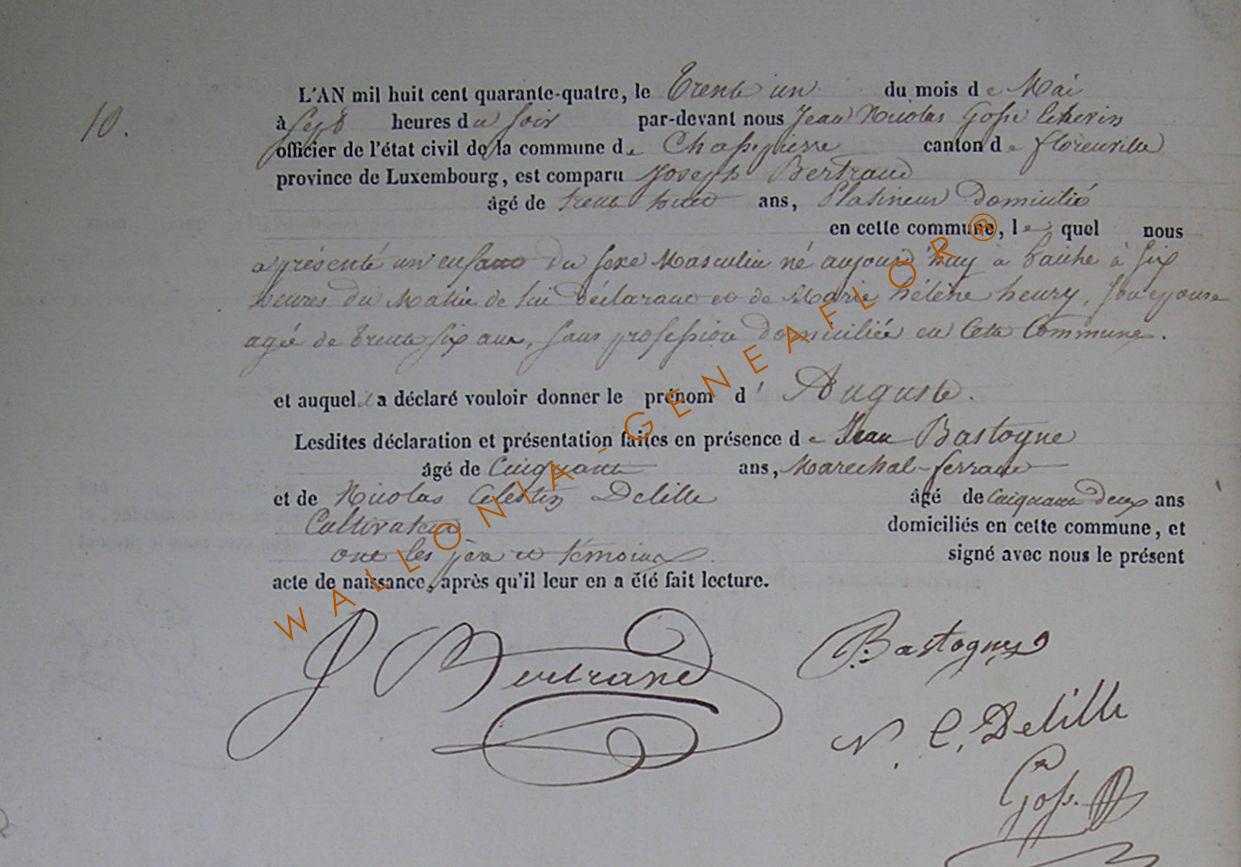 10.
L'AN mil huit cent quarante-quatre, le Trente un du mois de Mai
à Sept heures du Soir par-devant nous Jean Nicolas Gosse Echevin
officier de l'état civil de la commune de Chassepierre canton de florenville
province de Luxembourg, est comparu Joseph Bertrand
âgé de trente ans, Platineur Domicilié
en cette commune, le quel nous
a présenté un enfant du sexe Masculin né aujourd'huy à à Six
heures du Matin de lui Déclarant et de Marie hélène henry, Son epouse
agée de trente six ans, sans profession domiciliée en Cette Commune.
et auquel il a déclaré vouloir donner le prénom d' Auguste.
Lesdites déclaration et présentation faites en présence de Jean Bastogne
âgé de Cinquante ans, Marechal-ferrant
et de Nicolas Celestin Delille âgé de cinquante deux ans
Cultivateur domiciliés en cette commune, et
ont les père et témoins signé avec nous le présent
acte de naissance, après qu'il leur en a été fait lecture.
WALLONIA-GENEAFLOR®
J Bertrand
Bastogne
N. C. Delille
Goss.